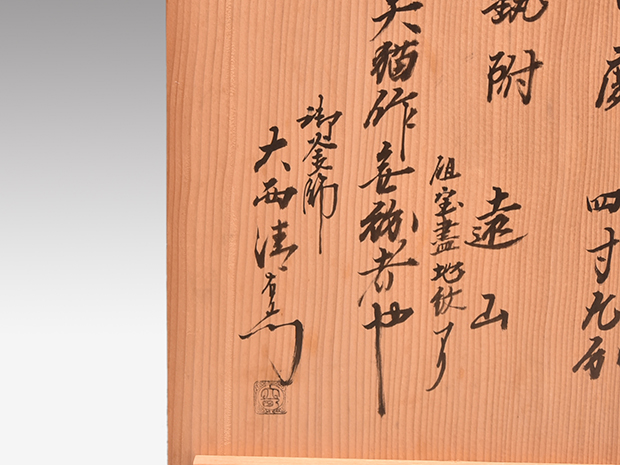 四寸九分
附 遠山
祖宝盡地紋アリ
天猫作無紛者也
御釜師
大西清右衛門